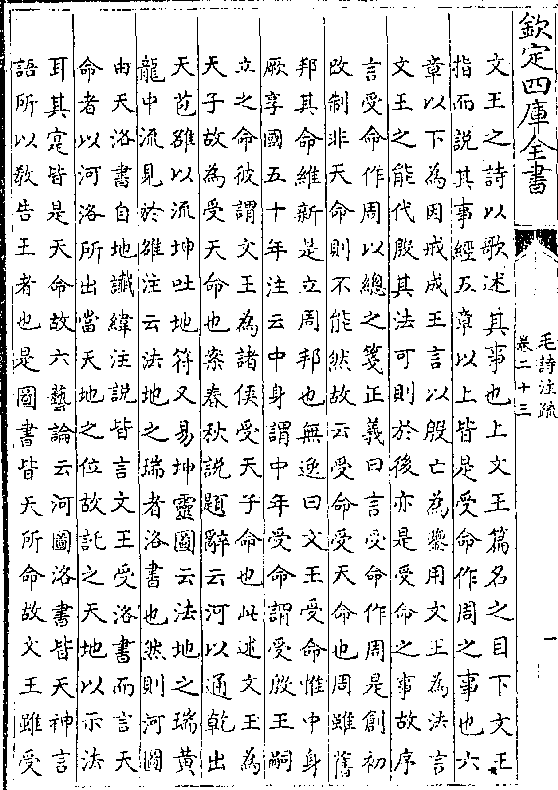 欽定四庫全書
毛詩注疏
卷二十三
一
文王之詩以歌述其事也上文王篇名之目下文王
指而說其事經五章以上皆是受命作周之事也六
章以下為因戒成王言以殷亡為鑒用文王為法言
文王之能代殷其法可則於後亦是受命之事故序
言受命作周以總之箋正義曰言受命作周是創初
改制非天命則不能然故云受命受天命也周雖舊
邦其命維新是立周邦也無逸曰文王受命惟中身
厥享國五十年注云中身謂中年受命謂受殷王嗣
立之命彼謂文王為諸侯受天子命也此述文王為
天子故為受天命也案春秋說題辭云河以通乾出
天苞雒以流坤吐地符又易坤靈圖云法地之瑞黃
龍中流見於雒注云法地之瑞者洛書也然則河圖
由天洛書自地讖緯注說皆言文王受洛書而言天
命者以河洛所出當天地之位故託之天地以示法
耳其寔皆是天命故六藝論云河圖洛書皆天神言
語所以教告王者也是圖書皆天所命故文王雖受